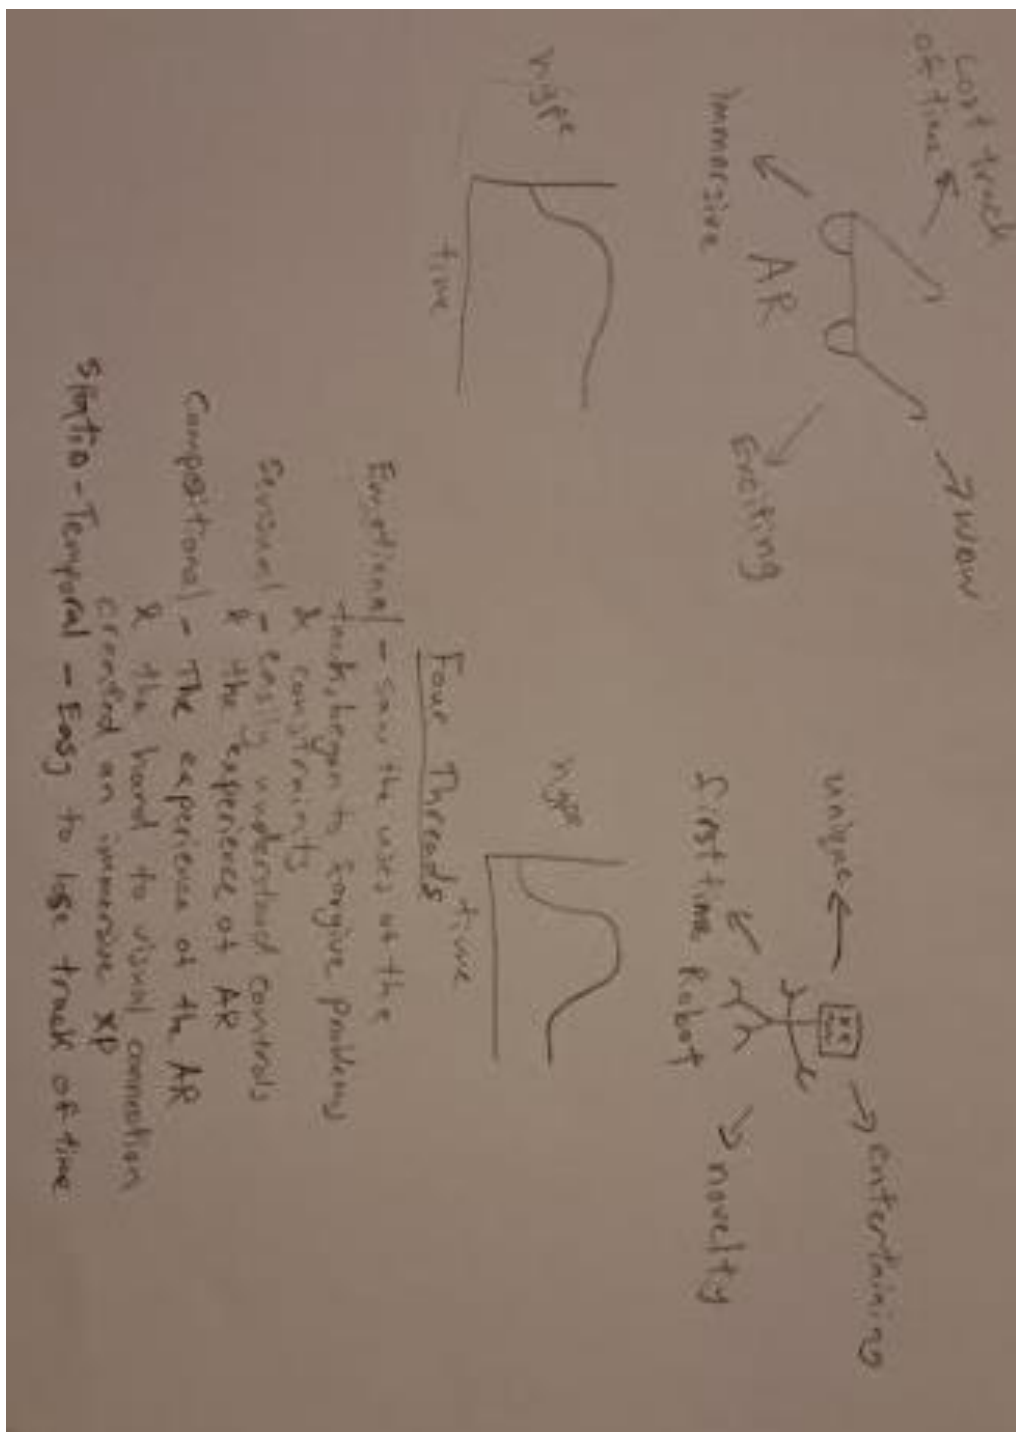 Lost track
of time
wow
AR
immersive
Exciting
hype
time
unique
entertaining
first time
Robot
novelty
hype
time
Four Threads
Emotional - saw the uses of the
tech, began to forgive problems
& constraints
Sensual - easily understand controls
& the experience of AR
Compositional - The experience of the AR
& the hand to visual connection
created an immersive XP
Spatio-Temporal - Easy to lose track of time